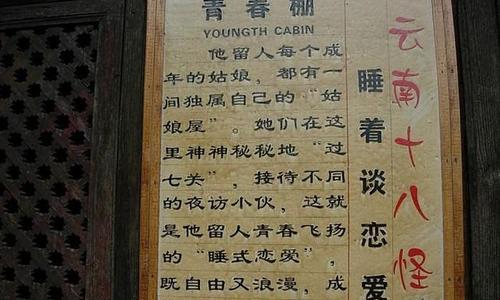 青春棚
YOUNGTH CABIN
他留人每个成
年的姑娘，都有一
间独属自己的“姑
娘屋”。她们在这
里神神秘秘地“过
七关”，接待不同
的夜访小伙，这就
是他留人青春飞扬
的“睡式恋爱”，
既自由又浪漫，成
睡着谈恋爱
云南十八怪